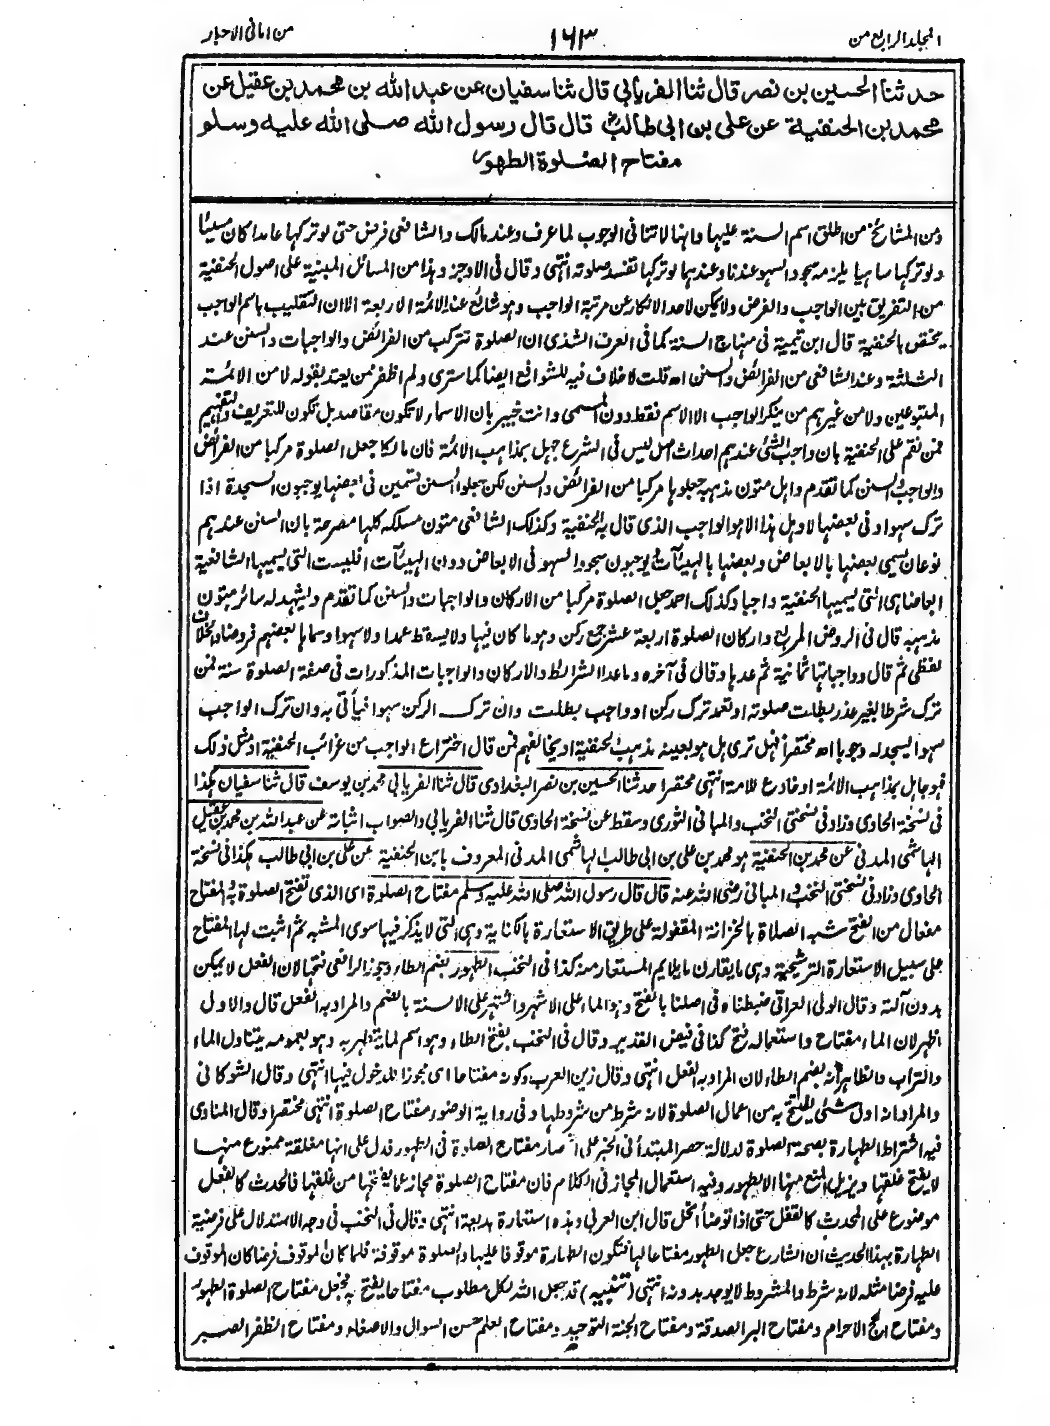 المجلد الرابع من
١٦٣
من امانی الاحبار
حدثنا الحسین بن نصر قال ثنا الفریابی قال ثنا سفیان عن عبد الله بن محمد بن عقیل عن
محمد بن الحنفیة عن علی بن ابی طالبؓ قال قال رسول الله صلی الله علیه وسلم
مفتاح الصلوة الطهور
ومن المشائخ من اطلق اسم السنة علیها وانها لا تنافی الوجوب لما عرف وعند مالک والشافعی فرض حتی لو ترکها عامدا کان مسیئا
ولو ترکها ساهیا یلزمه سجود السهو عندنا وعندهما لو ترکها تفسد صلوته انتهی وقال فی الاوجز وهذا من المسائل المبنیة علی اصول الحنفیة
من التفریق بین الواجب والفرض ولا یمکن لاحد الانکار عن مرتبة الواجب وهو شائع عند الائمة الاربعة الا ان التقلیب باسم الواجب
یختص بالحنفیة قال ابن تیمیة فی منهاج السنة کما فی العرف الشذی ان الصلوة تترکب من الفرائض والواجبات والسنن عند
الثلثة وعند الشافعی من الفرائض والسنن اه قلت لا خلاف فیه للشوافع ایضا کما ستری ولم اظفر من یعتد بقوله لا من الائمة
المتبوعین ولا من غیرهم من ینکر الواجب الا الاسم فقط دون المسمی وانت خبیر بان الاسماء لا تکون مقاصد بل تکون للتعریف والتفهیم
فمن نقم علی الحنفیة بان واجب الشئ عندهم احداث اصل لیس فی الشرع جهل بمذاهب الائمة فان مالکا جعل الصلوة مرکبا من الفرائض
والواجب والسنن کما تقدم واهل متون مذهبه جعلوها مرکبا من الفرائض والسنن لکن جعلوا السنن قسمین فی بعضها یوجبون السجدة اذا
ترک سهوا وفی بعضها لا وهل هذا الا هو الواجب الذی قال به الحنفیة وکذلک الشافعی متون مسلکه کلها مصرحة بان السنن عندهم
نوعان یسمی بعضها بالابعاض وبعضها بالهیئات یوجبون سجود السهو فی الابعاض دون الهیئات افلیست التی یسمیها الشافعیة
ابعاضا هی التی یسمیها الحنفیة واجبا وکذلک احمد جعل الصلوة مرکبا من الارکان والواجبات والسنن کما تقدم ویشهد له سائر متون
مذهبه قال فی الروض المربع وارکان الصلوة اربعة عشر جمع رکن وهو ما کان فیها ولا یسقط عمدا ولا سهوا وسماها بعضهم فروضا والخلاف
لفظی ثم قال وواجباتها ثمانیة ثم عدها وقال فی آخره وما عدا الشرائط والارکان والواجبات المذکورات فی صفة الصلوة سنة فمن
ترک شرطا بغیر عذر بطلت صلوته او تعمد ترک رکن او واجب بطلت وان ترک الرکن سهوا فیأتی به وان ترک الواجب
سهوا یسجد له وجوبا اه مختصرا فهل تری هل هو بعینه مذهب الحنفیة او یخالفهم فمن قال اختراع الواجب من غرائب الحنفیة او مثل ذلک
فهو جاهل بمذاهب الائمة او خادع للامة انتهی مختصرا حدثنا الحسین بن نصر البغدادی قال ثنا الفریابی محمد بن یوسف قال ثنا سفیان هکذا
فی نسخة الحاوی وزاد فی نسختی النخب والمبانی الثوری وسقط عن نسخة الحاوی قال ثنا الفریابی والصواب اثباته عن عبدالله بن محمد بن عقیل
الهاشمی المدنی عن محمد بن الحنفیة هو محمد بن علی بن ابی طالب الهاشمی المدنی المعروف بابن الحنفیة عن علی بن ابی طالب هکذا فی نسخة
الحاوی وزاد فی نسختی النخب والمبانی رضی الله عنه قال قال رسول الله صلی الله علیه وسلم مفتاح الصلوة ای الذی تفتح الصلوة به والمفتاح
مفعال من الفتح شبه الصلاة بالخزانة المقفولة علی طریق الاستعارة بالکنایة وهی التی لا یذکر فیها سوی المشبه ثم اثبت لها المفتاح
علی سبیل الاستعارة الترشیحیة وهی ما یقارن ما یلایم المستعار منه کذا فی النخب الطهور بضم الطاء وجوز الرافعی فتحها لان الفعل لا یمکن
بدون آلته وقال الولی العراقی ضبطناه فی اصلنا بالفتح وهو الماء علی الاشهر واشتهر علی الالسنة بالضم والمراد به الفعل قال والاول
اظهر لان الماء مفتاح واستعماله فتح کذا فی فیض القدیر وقال فی النخب بفتح الطاء وهو اسم لما یتطهر به وهو بعمومه یتناول الماء
والتراب والظاهر انه بضم الطاء لان المراد به الفعل انتهی وقال زین العرب وکونه مفتاحا ای مجوزا للدخول فیها انتهی وقال الشوکانی
والمراد انه اول شئ یفتتح به من اعمال الصلوة لانه شرط من شروطها وفی روایة الوضوء مفتاح الصلوة انتهی مختصرا وقال المناوی
فیه اشتراط الطهارة بصحة الصلوة لدلالة حصر المبتدأ فی الخبر علی انحصار مفتاح الصلوة فی الطهور فدل علی انها مغلقة ممنوع منها
لا یفتح غلقها ویزیل المنع منها الا الطهور وفیه استعمال المجاز فی الکلام فان مفتاح الصلوة مجاز عما یفتحها من غلقها فالحدث کالقفل
موضوع علی المحدث کالقفل حتی اذا توضأ انحل قال ابن العربی وهذه استعارة بدیعة انتهی وقال فی النخب فی وجه الاستدلال علی فرضیة
الطهارة بهذا الحدیث ان الشارع جعل الطهور مفتاحا لها فتکون الطهارة موقوفا علیها والصلوة موقوفة فلما کان الموقوف فرضا کان الموقوف
علیه فرضا مثله لانه شرط والمشروط لا یوجد بدونه انتهی (تنبیه) قد جعل الله لکل مطلوب مفتاحا یفتح به فجعل مفتاح الصلوة الطهور
ومفتاح الحج الاحرام ومفتاح البر الصدقة ومفتاح الجنة التوحید ومفتاح العلم حسن السوال والاصغاء ومفتاح الظفر الصبر